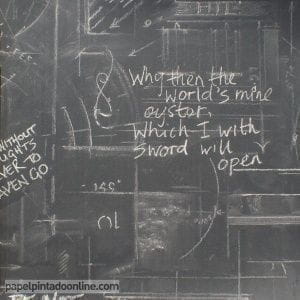 Why then the
world's mine
oyster,
Which I with
sword will
open
WITHOUT
TO
GO
papelpintadoonline.com